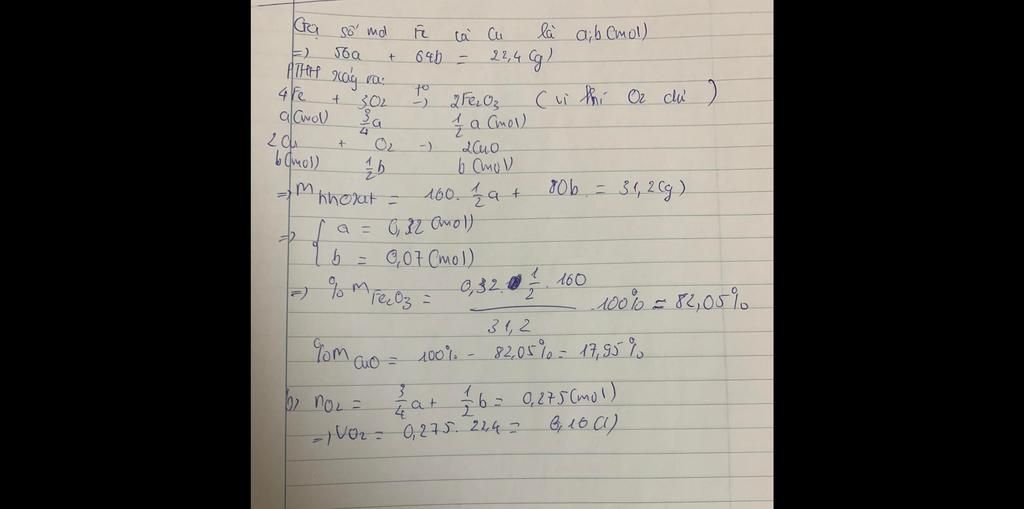 Gọi số mol Fe và Cu là a; b (mol)
=> 56a + 64b = 22,4 (g)
PTHH xảy ra:
4Fe + 3O2 t° -> 2Fe2O3 (vì khí O2 dư)
a (mol) 3/4 a 1/2 a (mol)
2Cu + O2 -> 2CuO
b (mol) 1/2 b b (mol)
=> m hh oxat = 160. 1/2 a + 80b = 31,2 (g)
=> { a = 0,32 (mol)
b = 0,07 (mol)
=> %m Fe2O3 = 0,32. 1/2 . 160 / 31,2 . 100% = 82,05%
%m CuO = 100% - 82,05% = 17,95%
b, nO2 = 3/4 a + 1/2 b = 0,275 (mol)
=> VO2 = 0,275. 22,4 = 6,16 (l)